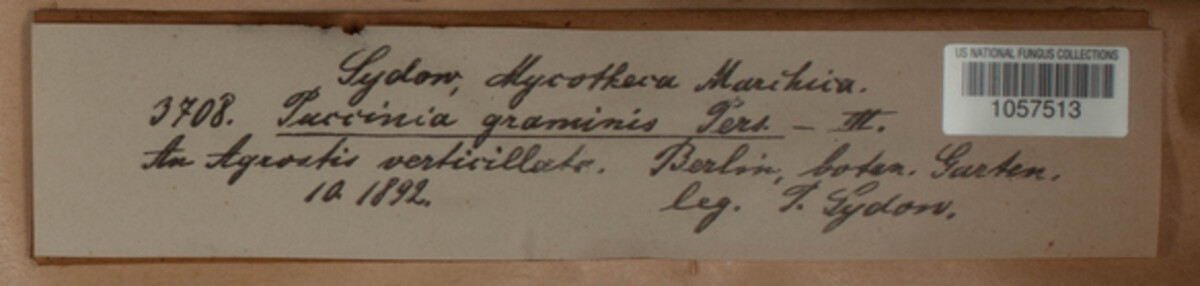 Sydow, Mycotheca Marchica.
US NATIONAL FUNGUS COLLECTIONS
1057513
3708. Puccinia graminis Pers. – III.
An Agrostis verticillata. Berlin, botan. Garten.
10. 1892. leg. P. Sydow.